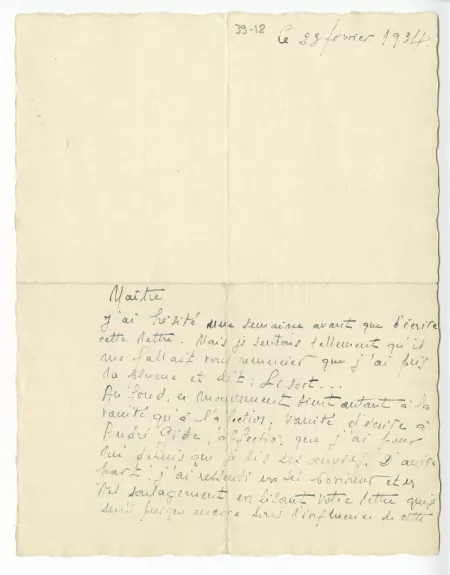 39-18
le 23 février 1934.
Maître
J'ai hésité une semaine avant que d'écrire
cette lettre. Mais je sentais tellement qu'il
me fallait vous remercier que j'ai pris
la plume et dit : Le sort...
Au fond, ce mouvement tient autant à la
vanité qu'à l'affection, vanité d'écrire à
André Gide, affection que j'ai pour
lui depuis que je lis ses œuvres. D'autre
part j'ai ressenti un bonheur et
soulagement en lisant votre lettre que je
suis encore sous l'influence de cette